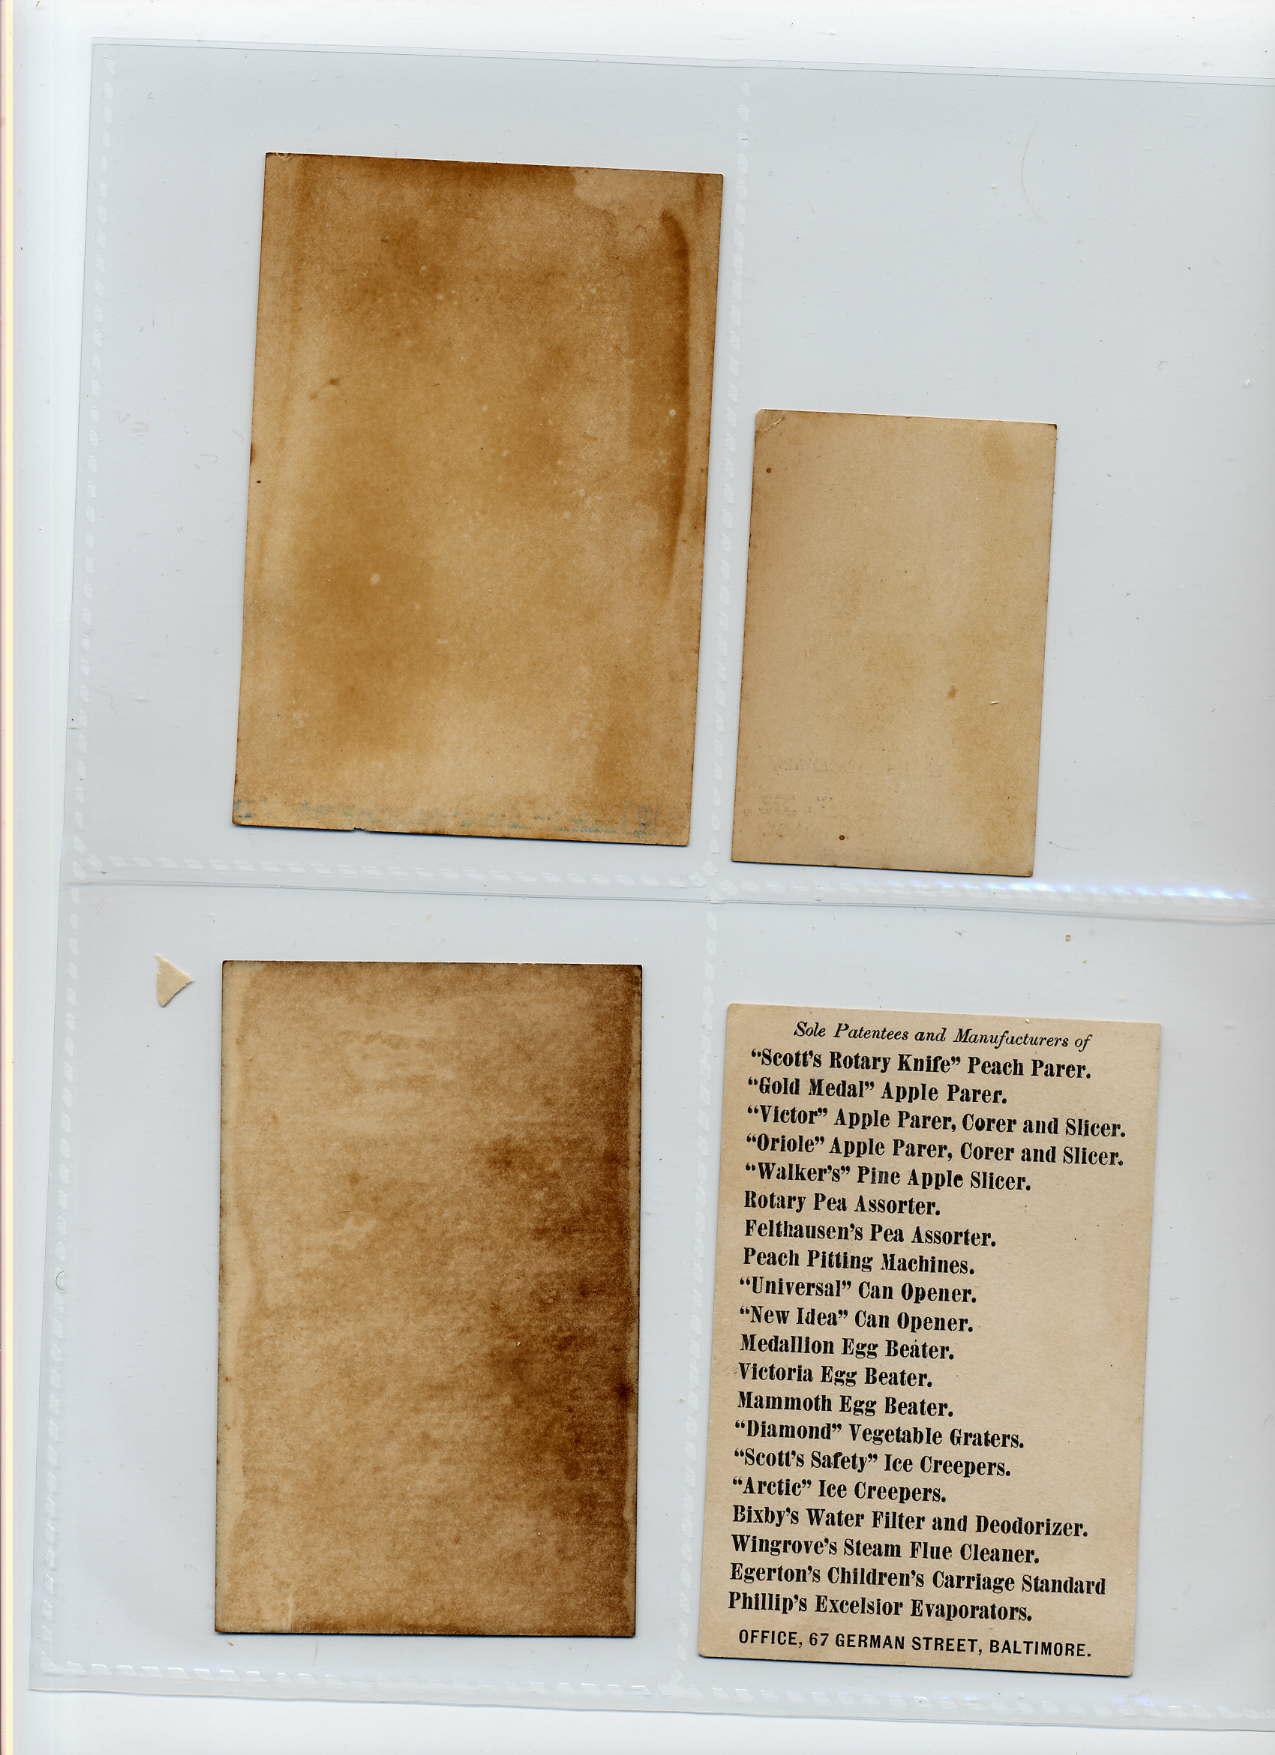 Sole Patentees and Manufacturers of
“Scott’s Rotary Knife” Peach Parer.
“Gold Medal” Apple Parer.
“Victor” Apple Parer, Corer and Slicer.
“Oriole” Apple Parer, Corer and Slicer.
“Walker’s” Pine Apple Slicer.
Rotary Pea Assorter.
Felthausen’s Pea Assorter.
Peach Pitting Machines.
“Universal” Can Opener.
“New Idea” Can Opener.
Medallion Egg Beater.
Victoria Egg Beater.
Mammoth Egg Beater.
“Diamond” Vegetable Graters.
“Scott’s Safety” Ice Creepers.
“Arctic” Ice Creepers.
Bixby’s Water Filter and Deodorizer.
Wingrove’s Steam Flue Cleaner.
Egerton’s Children’s Carriage Standard
Phillip’s Excelsior Evaporators.
OFFICE, 67 GERMAN STREET, BALTIMORE.